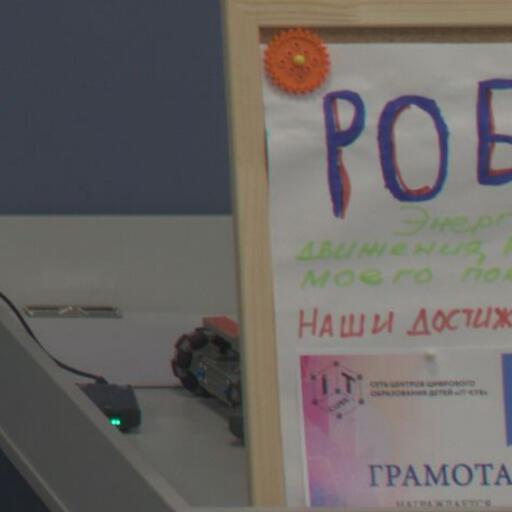 РОБ
Энерг
движения,
моего пок
Наши достиж
IT
CUBE
СЕТЬ ЦЕНТРОВ ЦИФРОВОГО
ОБРАЗОВАНИЯ ДЕТЕЙ «IT-КУБ»
ГРАМОТА
НАГРАЖДАЕТСЯ